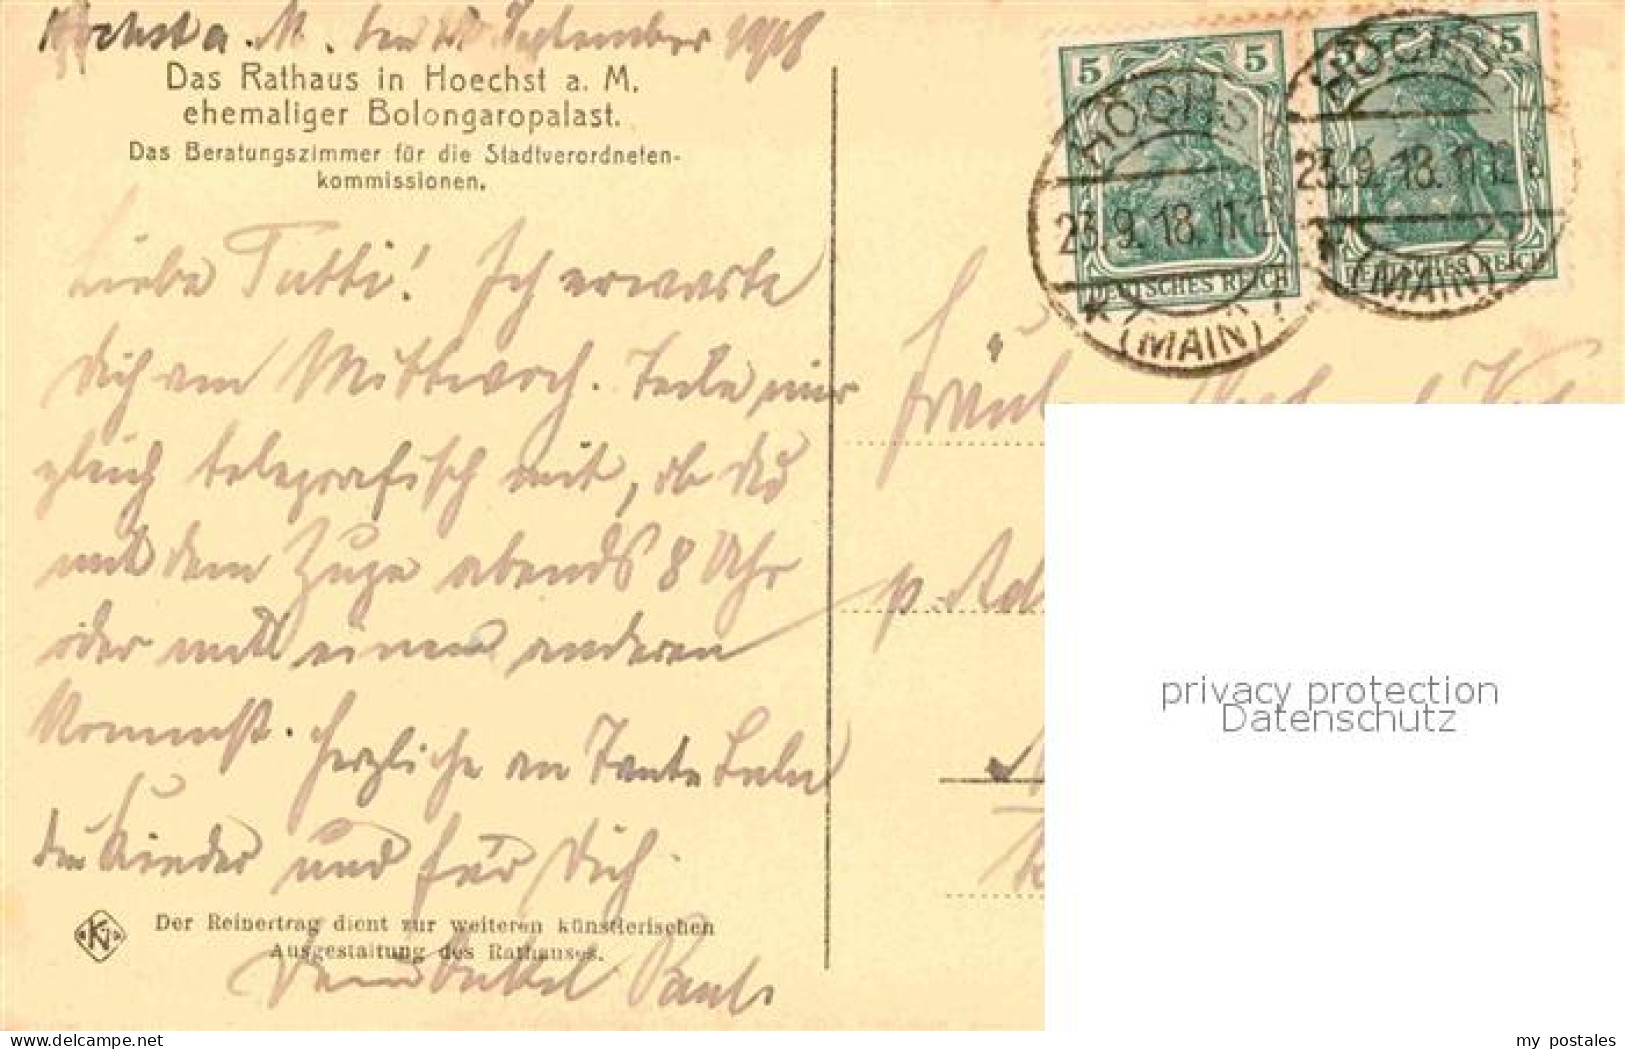 Höchst a. M. den September 1918
Das Rathaus in Hoechst a. M.
ehemaliger Bolongaropalast.
Das Beratungszimmer für die Stadtverordneten-
kommissionen.
Liebe Tutti! Ich erwarte
Dich am Mittwoch. Teile mir
gleich telegrafisch mit, ob Du
mit dem Zuge abends 8 Uhr
oder mit einem anderen
kommst. Herzliche an Tante
die Kinder und für Dich
Der Reinertrag dient zur weiteren künstlerischen
Ausgestaltung des Rathauses.
Dein Onkel Paul.
KN
5 5
DEUTSCHES REICH
HÖCHST
23.9.18.11-12
(MAIN)
5 5
DEUTSCHES REICH
HÖCHST
23.9.18.11-12
(MAIN)
p. Ad
privacy protection
Datenschutz
www.delcampe.net
my_postales